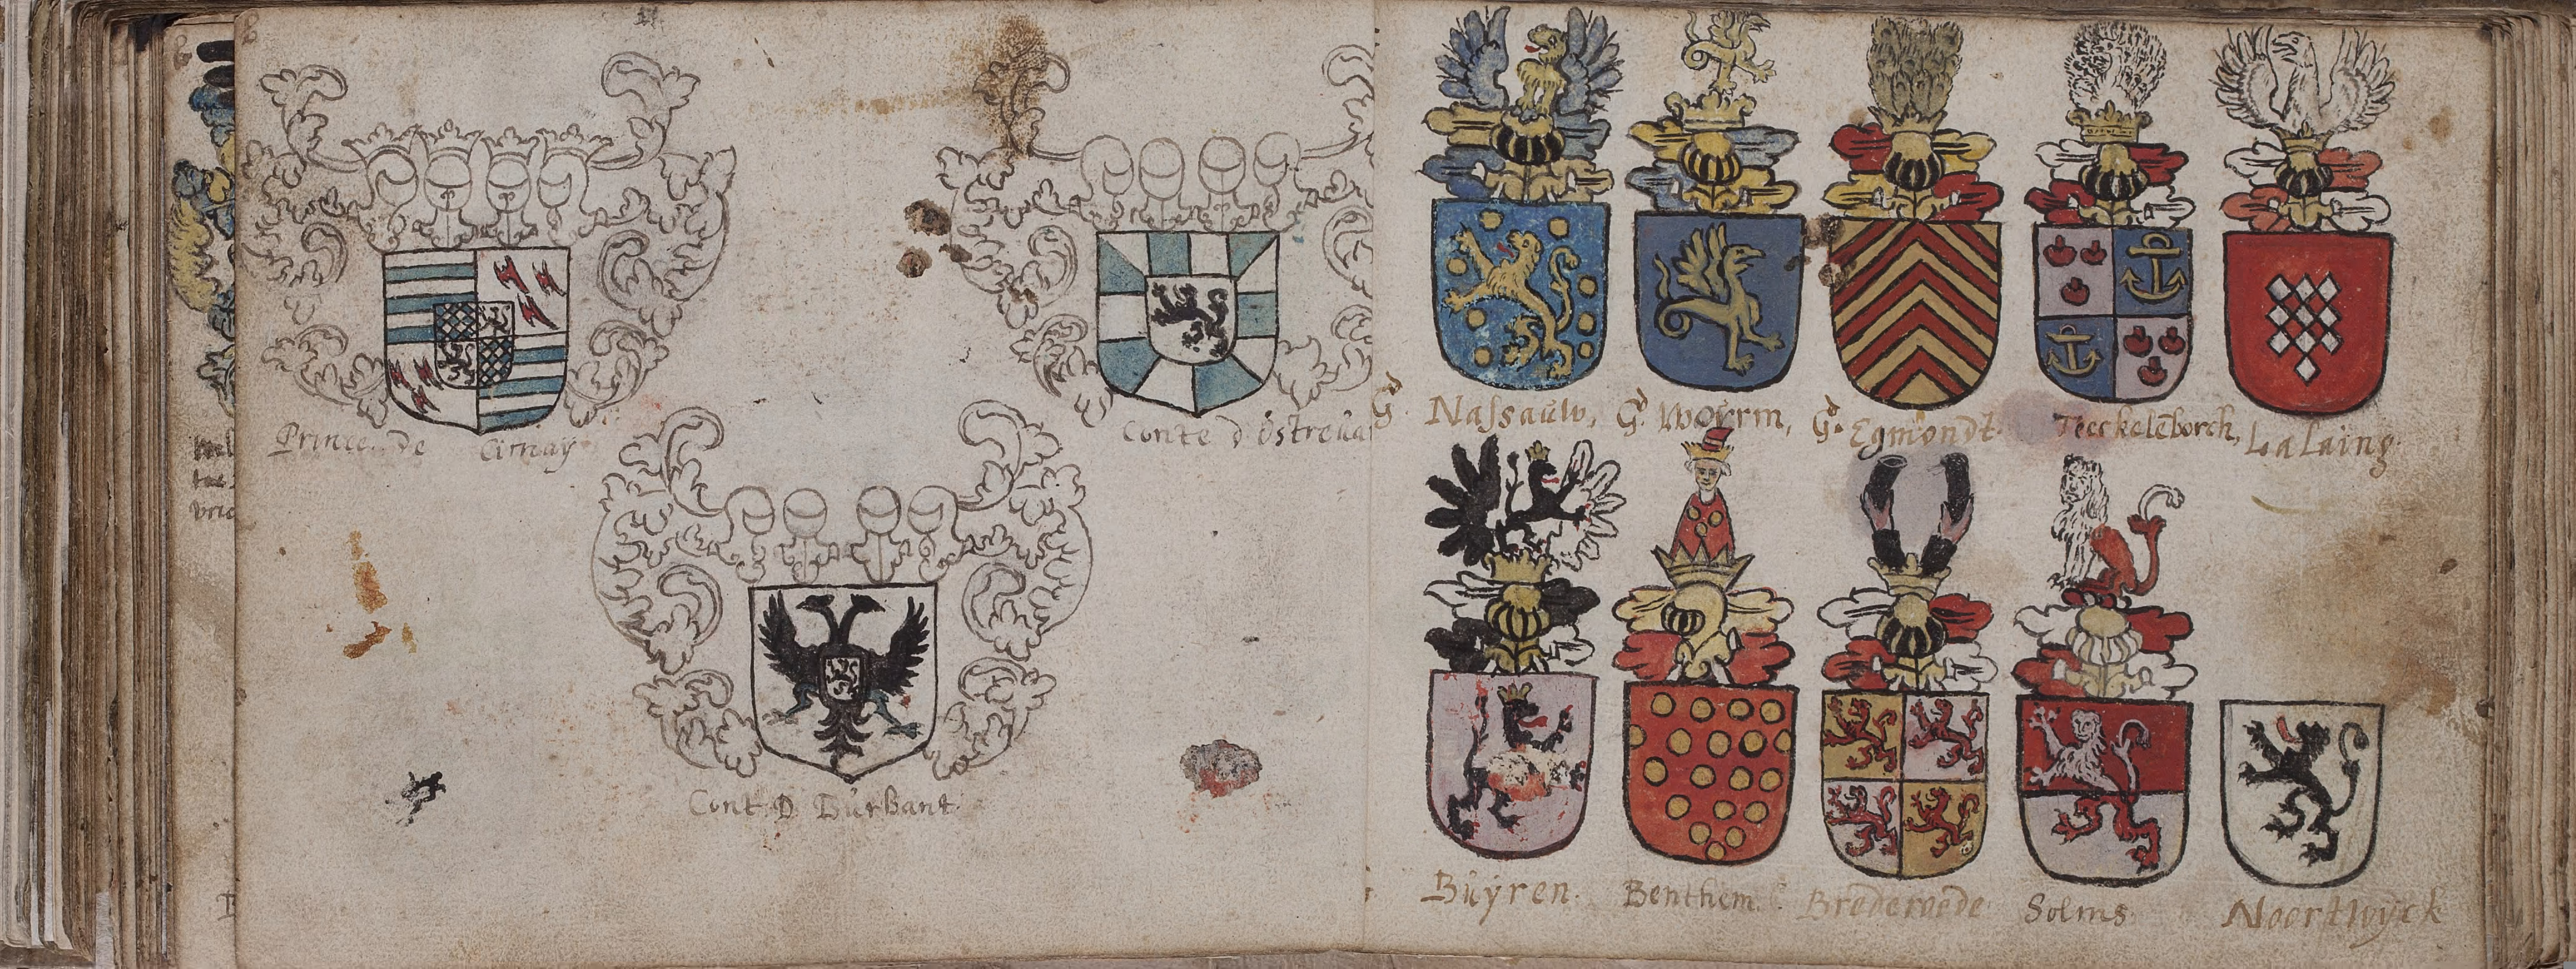 Prince de Cimay
Conte d Ostreua
Cont D Dürbant
G. Nassauw, G. Worm, G. Egmondt. Teeckelēborch, Lalaing.
Büÿren. Benthem. Brederoede Solms. Noortwÿck